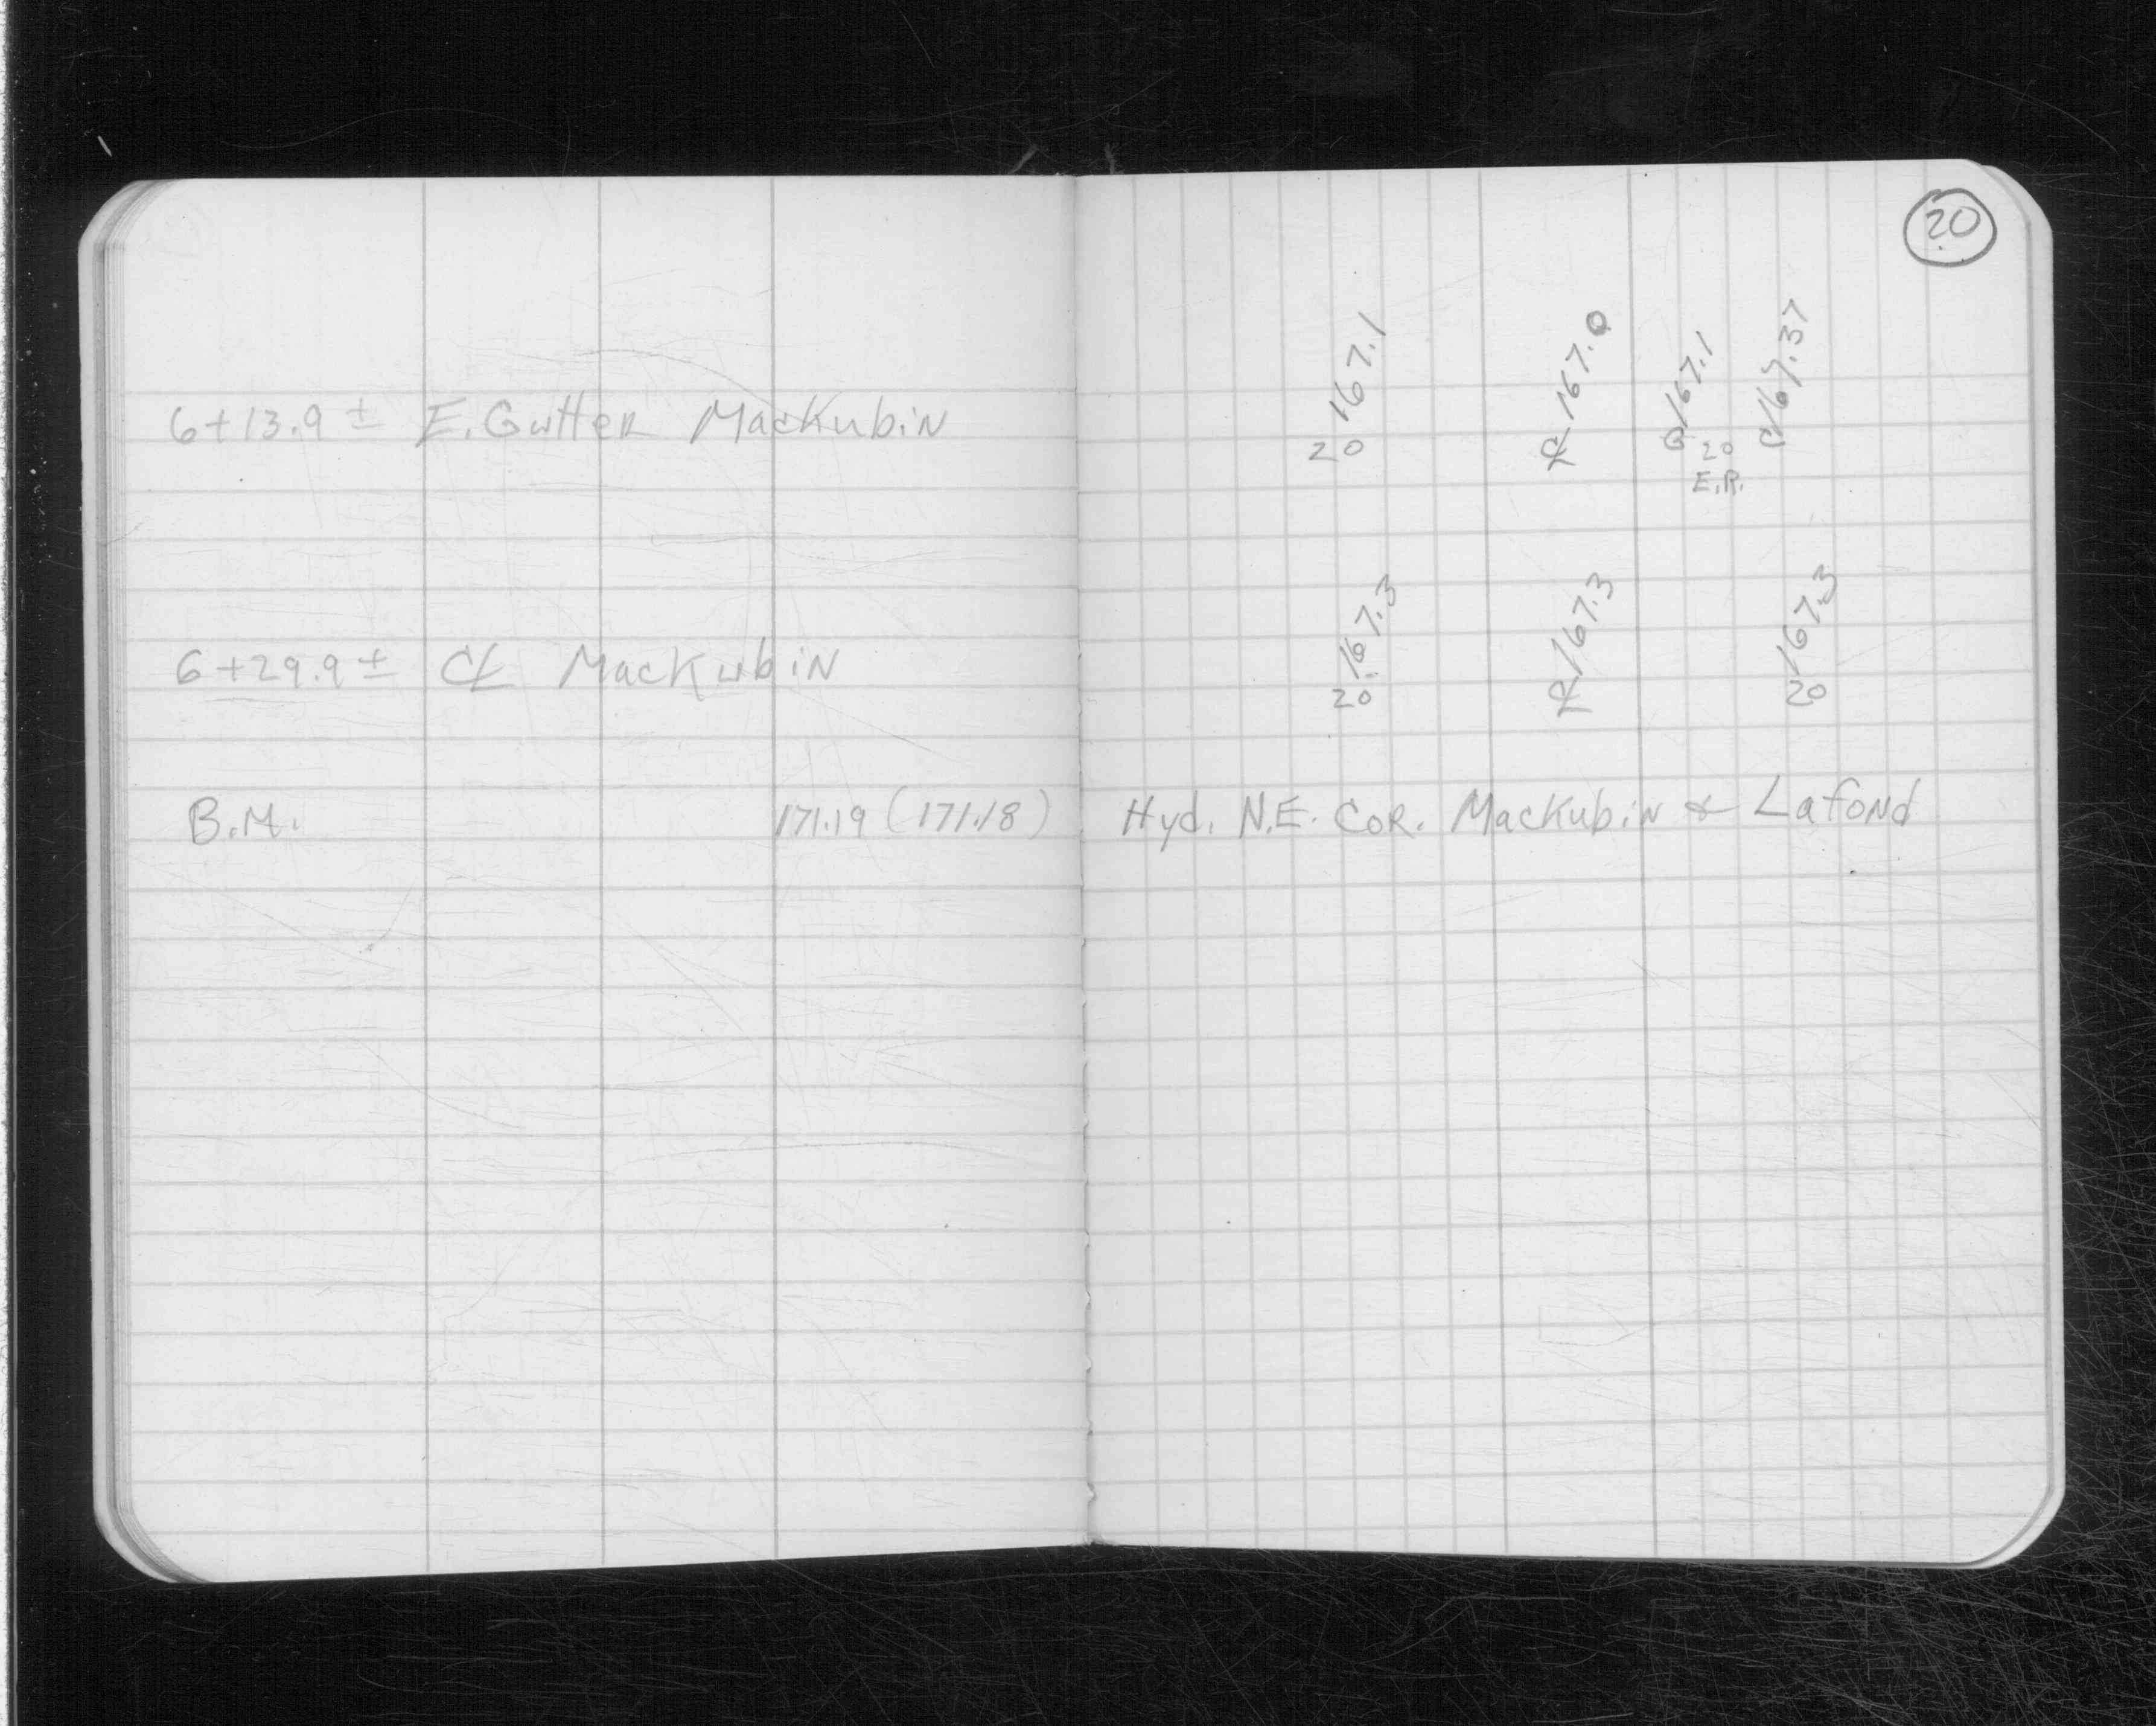 20
6+13.9 ± E. Gutter Mackubin
167.1 ℄ 167.0 G 167.1 C 167.37
20 20
E.R.
6+29.9 ± ℄ Mackubin
167.3 ℄ 167.3 167.3
20 20
B.M. 171.19 (171.18) Hyd. N.E. Cor. Mackubin & Lafond